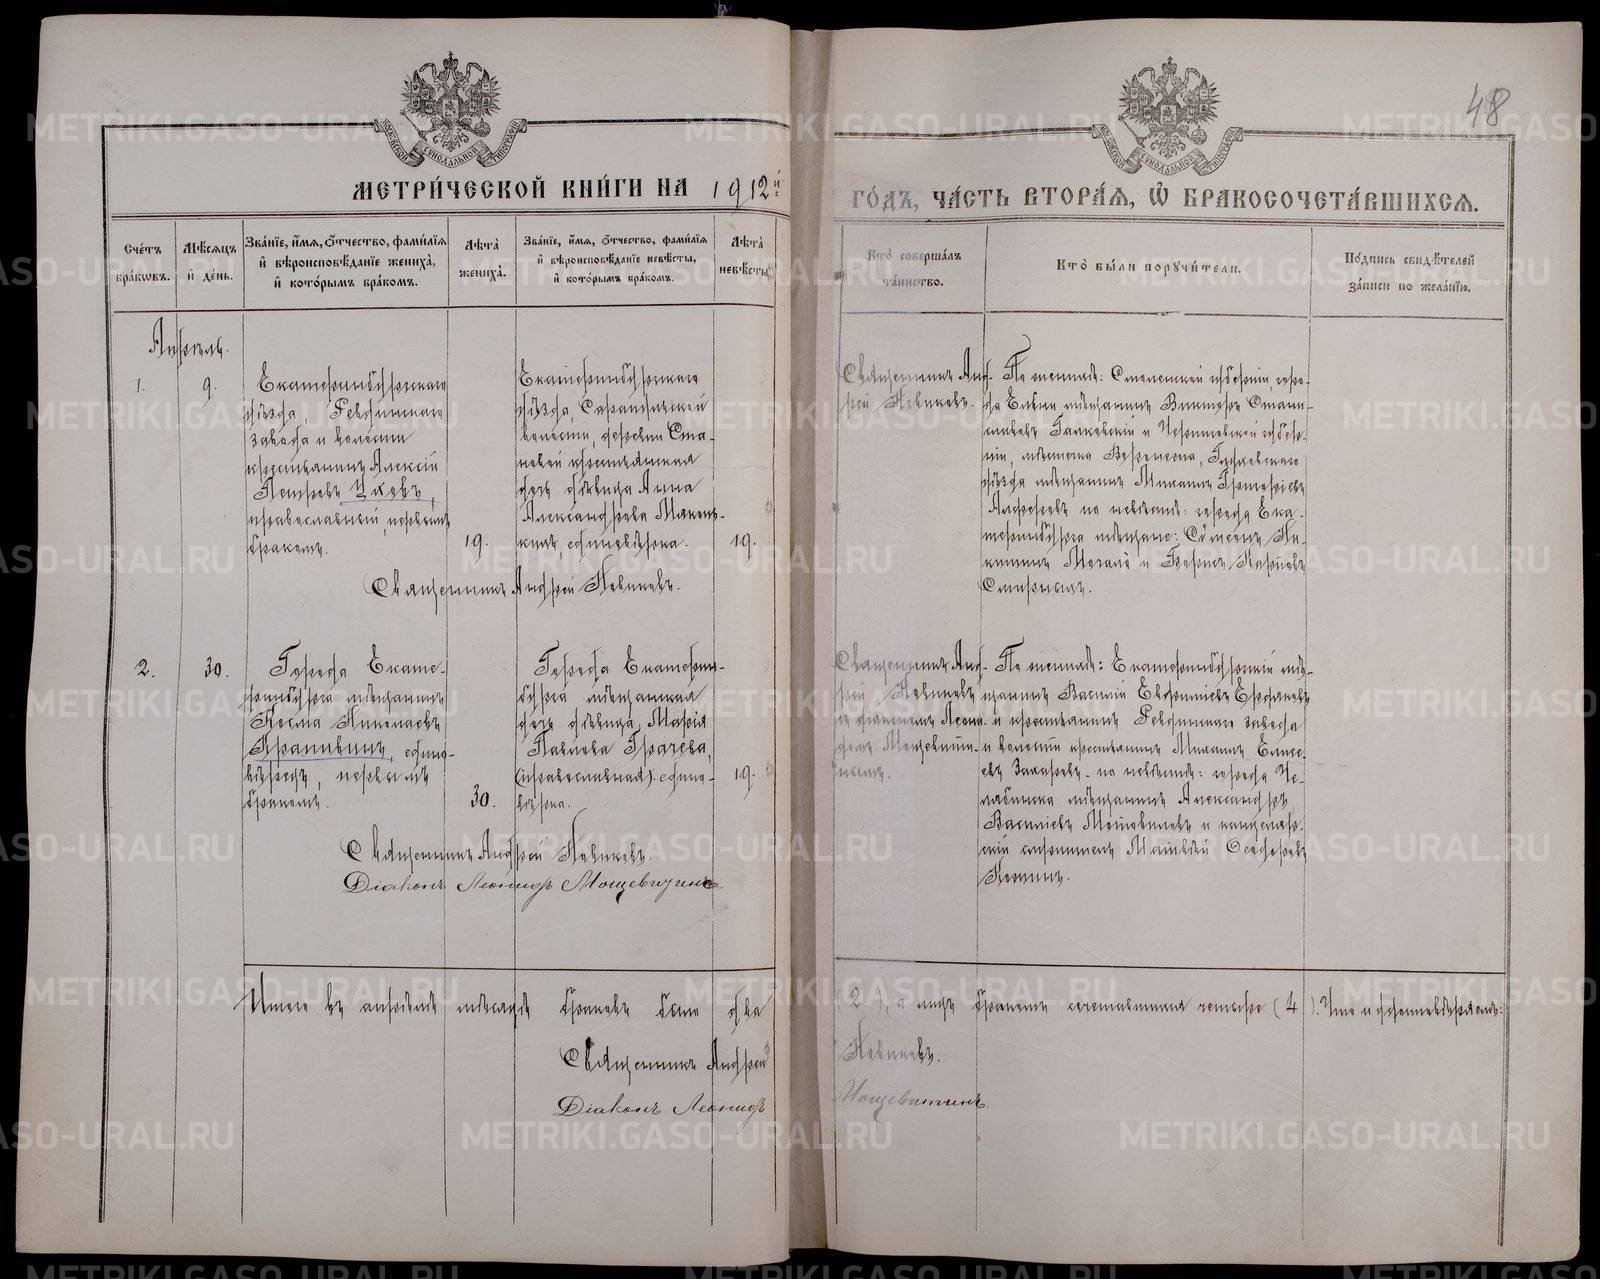 48
МЕТРИ́ЧЕСКОЙ КНИ́ГИ НА 1912й
ГО́ДЪ, ЧА́СТЬ ВТОРА́Я, Ѡ БРАКОСОЧЕТА́ВШИХСЯ.
МОСКОВСКОЙ СѴНОДАЛЬНОЙ ТИПОГРАФІИ
Сче́тъ бра́кѡвъ.
Мѣ́сяцъ и҆ де́нь.
Зва́нїе, и҆́мя, ѻ҆́тчество, фами́лїя
и҆ вѣроисповѣ́данїе жениха̀,
и҆ кото́рымъ бра́комъ.
Лѣ́та жениха̀.
Зва́нїе, и҆́мя, ѻ҆́тчество, фами́лїя
и҆ вѣроисповѣ́данїе невѣ́сты,
и҆ кото́рымъ бра́комъ.
Лѣ́та невѣ́сты.
Кто̀ соверша́лъ
та́инство.
Кто̀ бы́ли порꙋчи́тели.
По́дпись свидѣ́телей
за́писи по жела́нїю.
Апрѣль.
1.
9.
Екатеринбургскаго
уѣзда, Ревдинскаго
завода и волости
крестьянинъ Алексій
Петровъ Уковъ,
православный, первымъ
бракомъ.
19.
Екатеринбургскаго
уѣзда,
волости, деревни Ста-
новой крестьянская
дочь дѣвица Анна
Александрова
единовѣрка.
19.
Священникъ Анд-
рей Новиковъ.
По женихѣ: Смоленской губерніи, горо-
да Ельни мѣщанинъ Викторъ Стани-
славовъ Галковскій и Черниговской губер-
ніи, мѣстечка
уѣзда мѣщанинъ Михаилъ Григоріевъ
по невѣстѣ: города Ека-
теринбурга мѣщане: Симеонъ Ни-
китинъ и Борисъ
Смирныхъ.
Священникъ Андрей Новиковъ.
2.
30.
Города Екате-
ринбурга мѣщанинъ
Косма Николаевъ
Крапивинъ, едино-
вѣрецъ, первымъ
бракомъ.
30.
Города Екатерин-
бурга мѣщанская
дочь дѣвица Марія
Павлова Грачева,
(православная): едино-
вѣрка.
19.
Священникъ Анд-
рей Новиковъ
и діакономъ Леони-
домъ Мощевити-
нымъ.
По женихѣ: Екатеринбургскій мѣ-
щанинъ Василій
и крестьянинъ Ревдинскаго завода
и волости крестьянинъ Михаилъ Елисе-
евъ Захаровъ. по невѣстѣ: города Че-
лябинска мѣщанинъ Александръ
Василіевъ и канцеляр-
скій служитель Матвѣй Ѳеодоровъ
Священникъ Андрей Новиковъ.
Діаконъ Леонидъ Мощевитинъ.
Итого въ апрѣлѣ мѣсяцѣ браковъ было два (2), а лицъ бракомъ сочетавшихся четыре (4). Что и удостовѣряемъ:
Священникъ Андрей Новиковъ.
Діаконъ Леонидъ Мощевитинъ.
METRIKI.GASO-URAL.RU